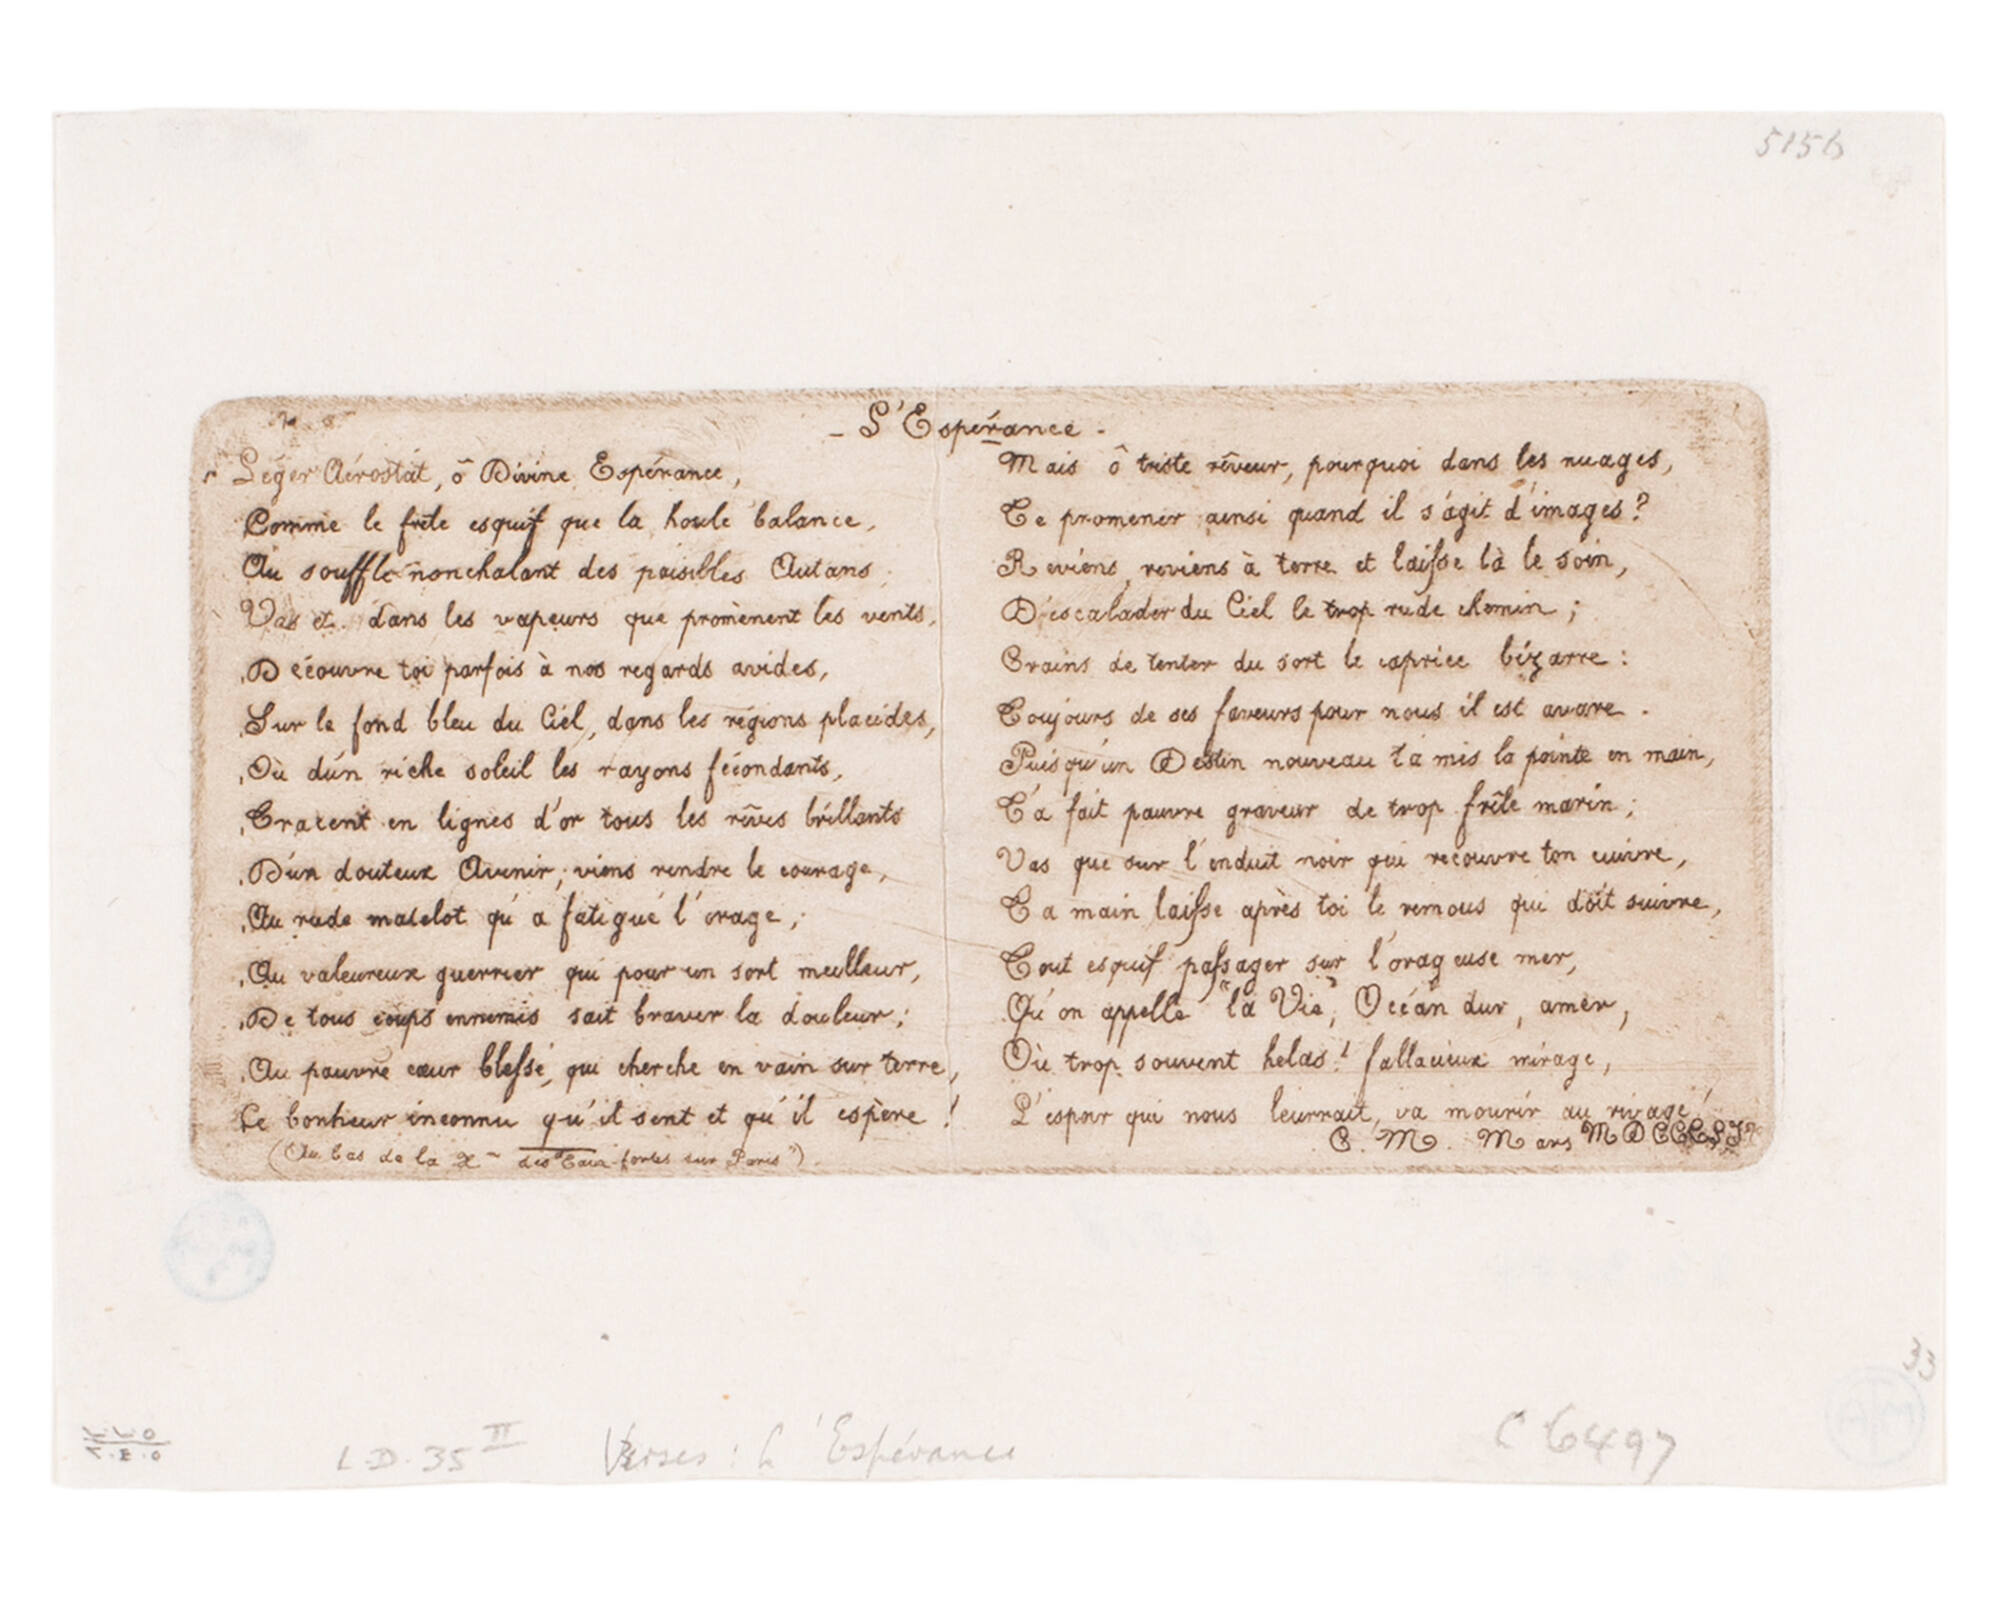 5156
- L'Espérance -
Léger Aérostat, ô Divine Espérance,
Comme le frêle esquif que la houle balance,
Au souffle nonchalant des paisibles Autans,
Vas et dans les vapeurs que promènent les vents,
Découvre toi parfois à nos regards avides,
Sur le fond bleu du Ciel, dans les régions placides,
Où d'un riche soleil les rayons fécondants,
Tracent en lignes d'or tous les rêves brillants
D'un douteux Avenir; viens rendre le courage,
Au rude matelot qu'a fatigué l'orage;
Au valeureux guerrier qui pour un sort meilleur,
De tous coups ennemis sait braver la douleur;
Au pauvre cœur blessé, qui cherche en vain sur terre,
Le bonheur inconnu qu'il sent et qu'il espère!
(Au bas de la x des "Eaux-fortes sur Paris").
Mais ô triste rêveur, pourquoi dans les nuages,
Te promener ainsi quand il s'agit d'images?
Reviens, reviens à terre et laisse là le soin,
D'escalader du Ciel le trop rude chemin;
Crains de tenter du sort le caprice bizarre:
Toujours de ses faveurs pour nous il est avare.
Puisqu'un Destin nouveau t'a mis la pointe en main,
T'a fait pauvre graveur de trop frêle marin;
Vas que sur l'enduit noir qui recouvre ton cuivre,
Ta main laisse après toi le remous qui doit suivre,
Tout esquif passager sur l'orageuse mer,
Qu'on appelle "la Vie", Océan dur, amer,
Où trop souvent helas! fallacieux mirage,
L'espoir qui nous leurrait, va mourir au rivage!
C. M. Mars
33
L.D. 35 II Verses: L'Espérance
C 6497